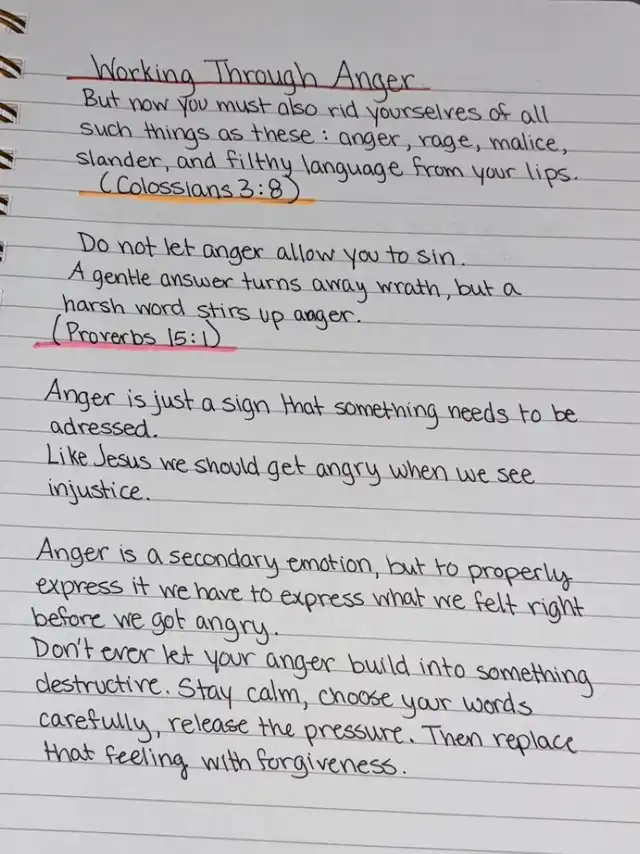 Working Through Anger
But now you must also rid yourselves of all
such things as these: anger, rage, malice,
slander, and filthy language from your lips.
(Colossians 3:8)
Do not let anger allow you to sin.
A gentle answer turns away wrath, but a
harsh word stirs up anger.
(Proverbs 15:1)
Anger is just a sign that something needs to be
adressed.
Like Jesus we should get angry when we see
injustice.
Anger is a secondary emotion, but to properly
express it we have to express what we felt right
before we got angry.
Don't ever let your anger build into something
destructive. Stay calm, choose your words
carefully, release the pressure. Then replace
that feeling with forgiveness.